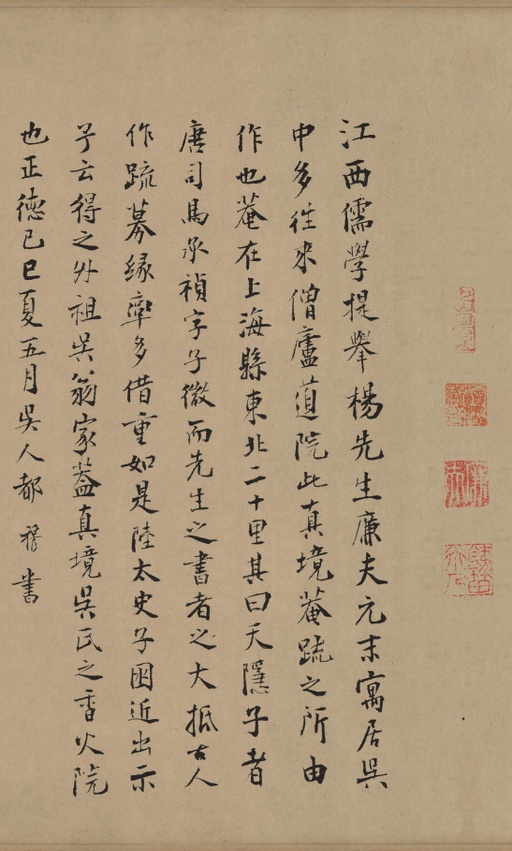 江西儒學提舉楊先生廉夫元末寓居吳
中多往來僧廬道院此真境菴疏之所由
作也菴在上海縣東北二十里其曰天隱子者
唐司馬承禎字子微而先生之書者之大抵古人
作疏募緣率多借重如是陸太史子囦近出示
予云得之外祖吳翁家蓋真境吳氏之香火院
也正德己巳夏五月吳人都穆書